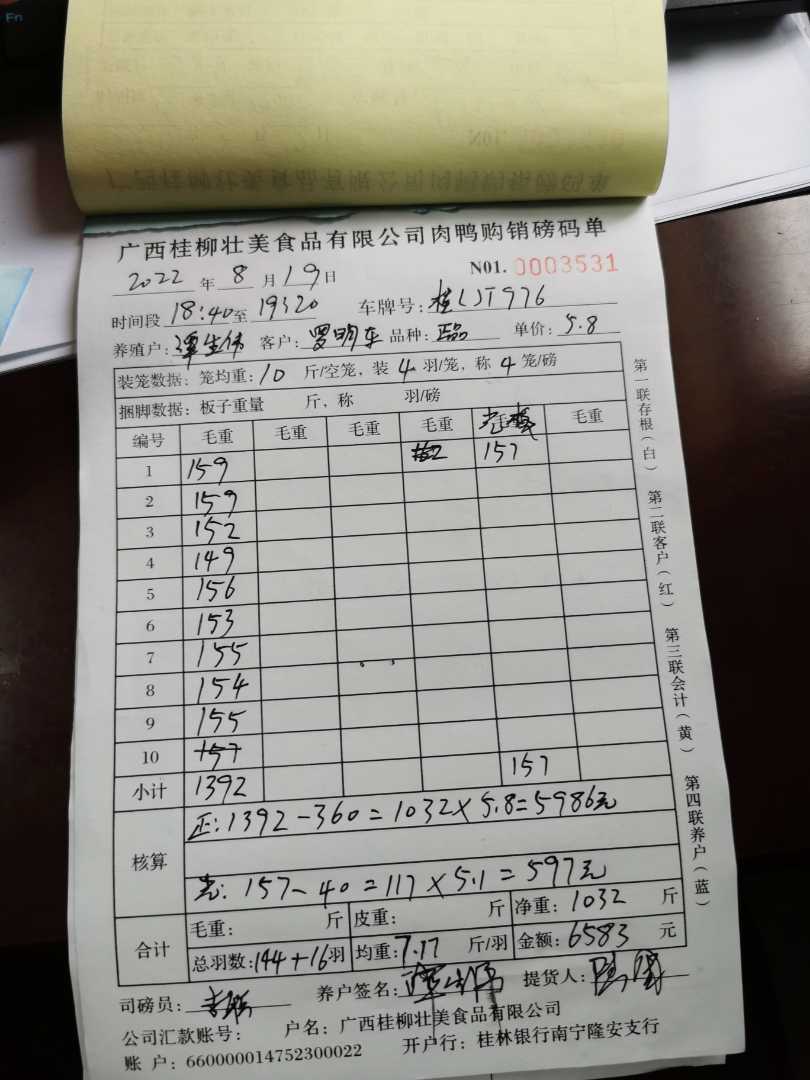 Fn
广西桂柳壮美食品有限公司肉鸭购销磅码单
2022 年 8 月 19 日 N01. 0003531
时间段 18:40 至 19:20 车牌号: 桂LJT976
养殖户: 谭生伟 客户: 罗明车 品种: 正品 单价: 5.8
装笼数据: 笼均重: 10 斤/空笼, 装 4 羽/笼, 称 4 笼/磅
捆脚数据: 板子重量 斤, 称 羽/磅
编号 毛重 毛重 毛重 毛重 毛重
1 159 157
2 159
3 152
4 149
5 156
6 153
7 155
8 154
9 155
10 157
小计 1392 157
核算
正: 1392-360=1032×5.8=5986元
157-40=117×5.1=597元
合计
毛重: 斤 皮重: 斤 净重: 1032 斤
总羽数: 144+16 羽 均重: 7.17 斤/羽 金额: 6583 元
司磅员: 养户签名: 谭生伟 提货人:
公司汇款账号: 户名: 广西桂柳壮美食品有限公司
账 户: 660000014752300022 开户行: 桂林银行南宁隆安支行
第一联存根(白) 第二联客户(红) 第三联会计(黄) 第四联养户(蓝)